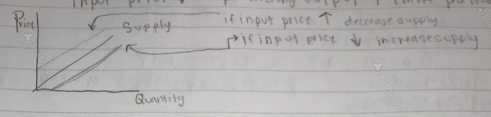 input price ↓
Price
Supply
if input price ↑ decrease supply
if input price ↓ increase supply
Quantity